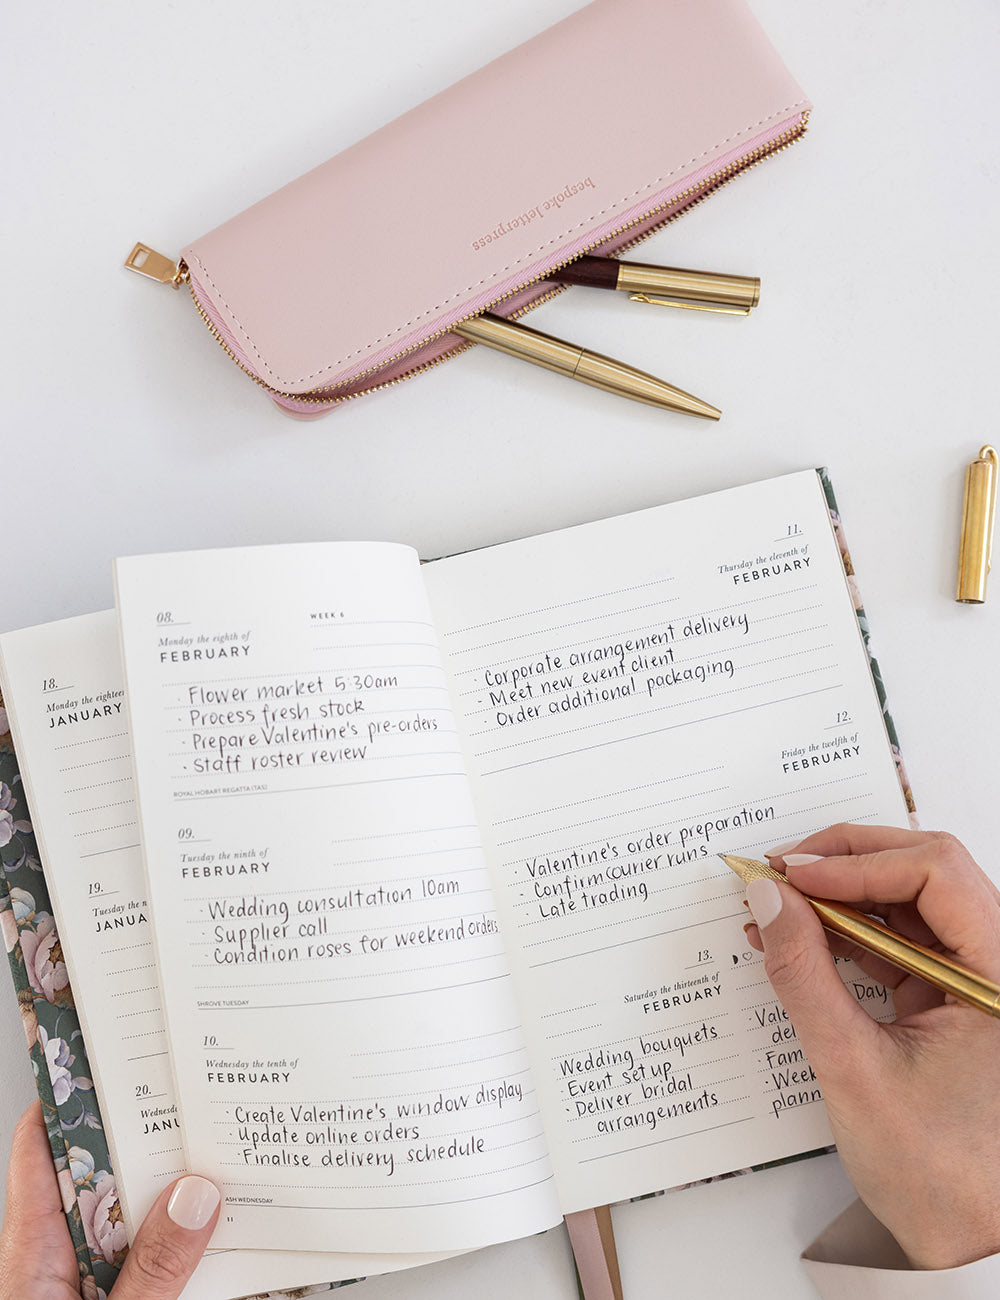 bespoke letterpress
18.
Monday the eighteen
JANUARY
19.
Tuesday the n
JANUA
20.
Wednesd
JANU
08.
WEEK 6
Monday the eighth of
FEBRUARY
· Flower market 5:30am
· Process fresh stock
· Prepare Valentine's pre-orders
· Staff roster review
ROYAL HOBART REGATTA (TAS)
09.
Tuesday the ninth of
FEBRUARY
· Wedding consultation 10am
· Supplier call
· Condition roses for weekend orders
SHROVE TUESDAY
10.
Wednesday the tenth of
FEBRUARY
· Create Valentine's window display
· Update online orders
· Finalise delivery schedule
ASH WEDNESDAY
11.
Thursday the eleventh of
FEBRUARY
· Corporate arrangement delivery
· Meet new event client
· Order additional packaging
12.
Friday the twelfth of
FEBRUARY
· Valentine's order preparation
· Confirm courier runs
· Late trading
13.
Saturday the thirteenth of
FEBRUARY
Wedding bouquets
· Event set up
· Deliver bridal
arrangements
FE
Day
Vale
del
Fam
· Week
plann